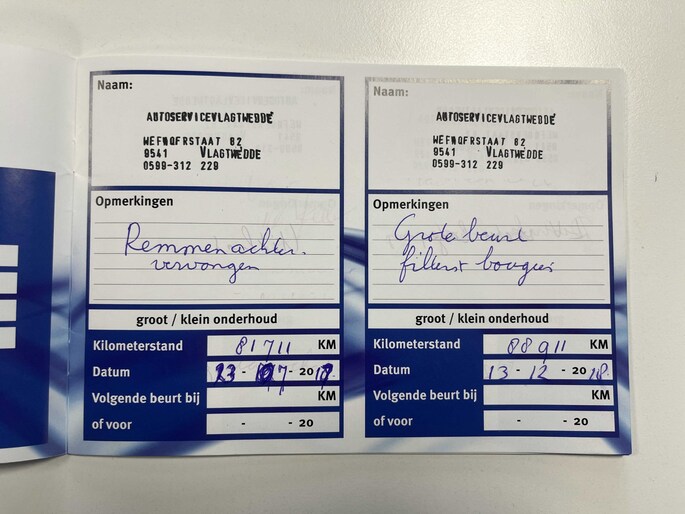 Naam:
AUTOSERVICEVLAGTWEDDE
WEFWQFRSTAAT 82
9541 VLAGTWEDDE
0599-312 229
Opmerkingen
Remmen achter
vervangen
groot / klein onderhoud
Kilometerstand 81711 KM
Datum 23 - 07 - 20 18
Volgende beurt bij KM
of voor - - 20
Naam:
AUTOSERVICEVLAGTWEDDE
WEFWQFRSTAAT 82
9541 VLAGTWEDDE
0599-312 229
Opmerkingen
Grote beurt
filters+ bougies
groot / klein onderhoud
Kilometerstand 88911 KM
Datum 13 - 12 - 20 18
Volgende beurt bij KM
of voor - - 20